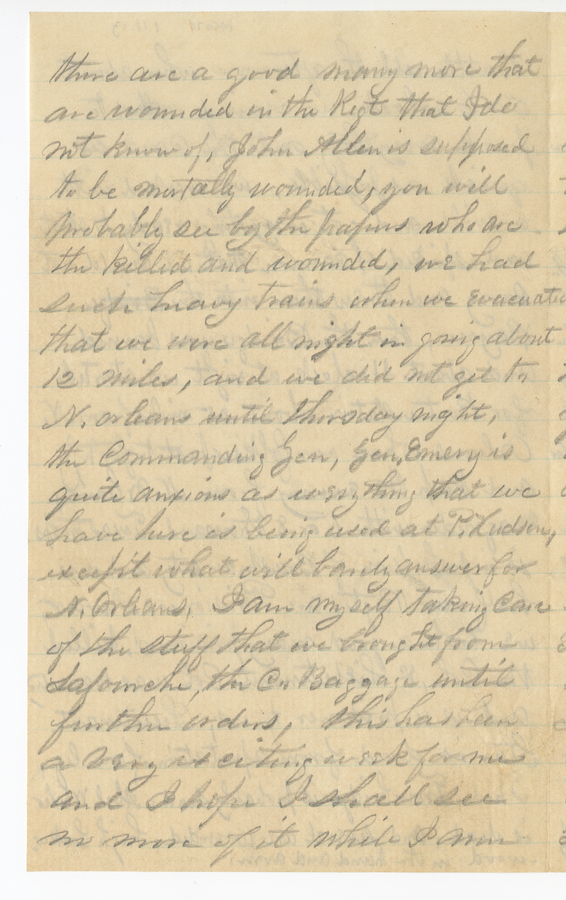 there are a good many more that
are wounded in the Regt that I do
not know of, John Allen is supposed
to be mortally wounded, you will
probably see by the papers who are
the killed and wounded, we had
such heavy trains when we evacuated
that we were all night in going about
12 miles, and we did not get to
N. orleans until thursday night,
the Commanding Gen, Gen, Emery is
quite anxious as everything that we
have here is being used at P. Hudson,
except what will barely answer for
N. Orleans, I am myself taking care
of the stuff that we brought from
Lafourche, the Co Baggage until
further orders, this has been
a very exciting week for me
and I hope I shall see
no more of it while I am